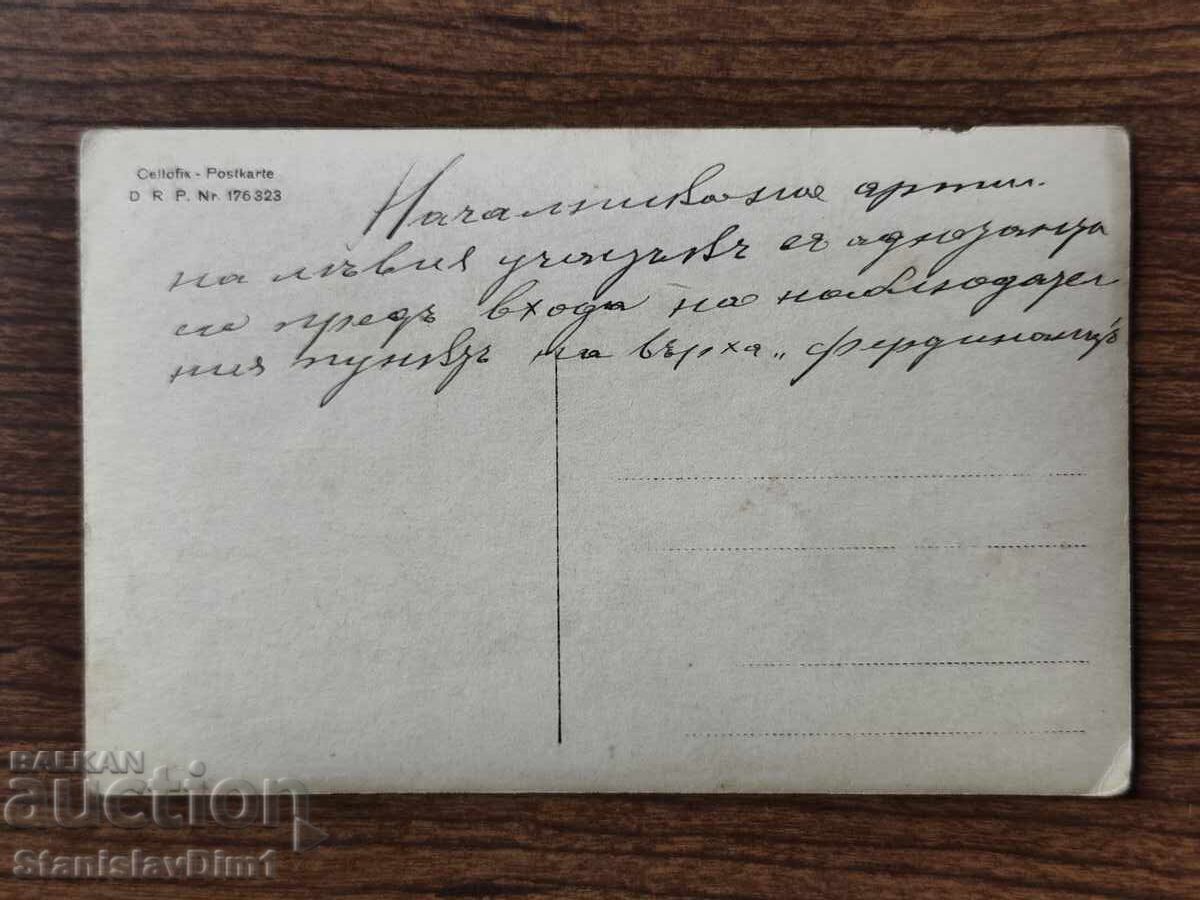 Cellofix - Postkarte
D R P. Nr. 176323
Началникътъ на арти.
на лѣвия участъкъ съ адютанта
си предъ входа на наблюдател
ния пунктъ на върха „Фердинандъ
BALKAN
auction
StanislavDim1